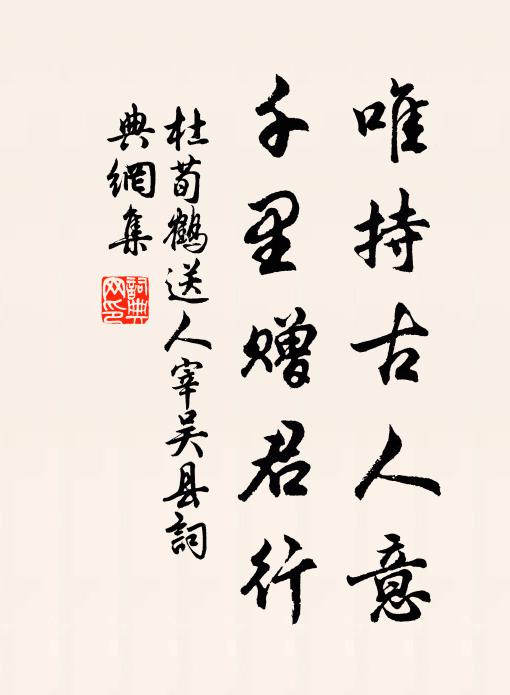 唯持古人意
千里赠君行
杜荀鶴送人宰吴县詞
典網集
詞典
网印